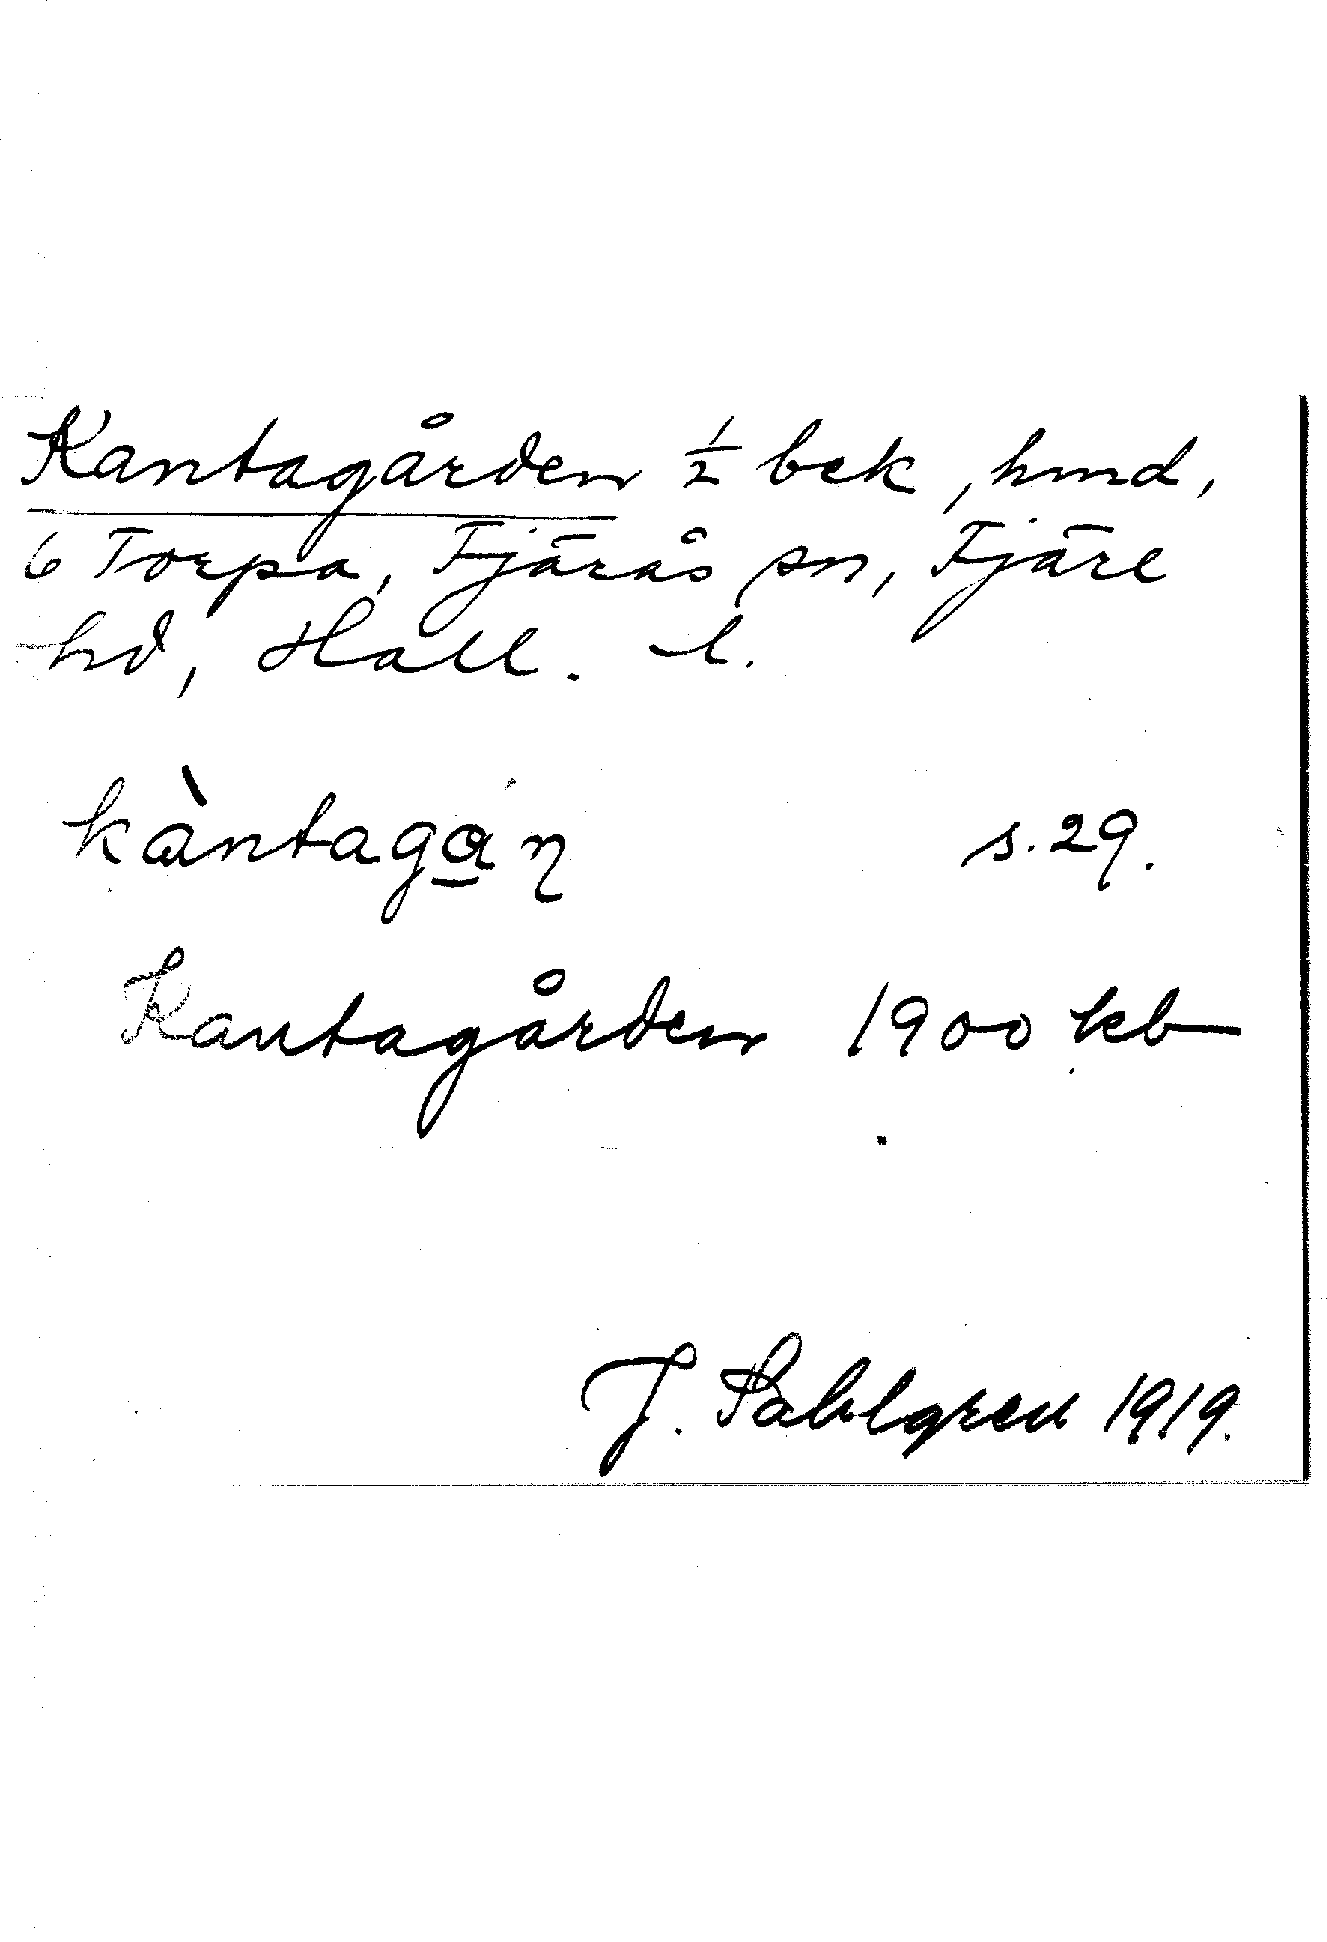 Kantagården 1/2 bek, hmd,
6 Torpa, Fjärås sn, Fjäre
hd, Hall. l.
kàntagan s. 29.
Kantagården 1900 kb
J. Sahlgren 1919.